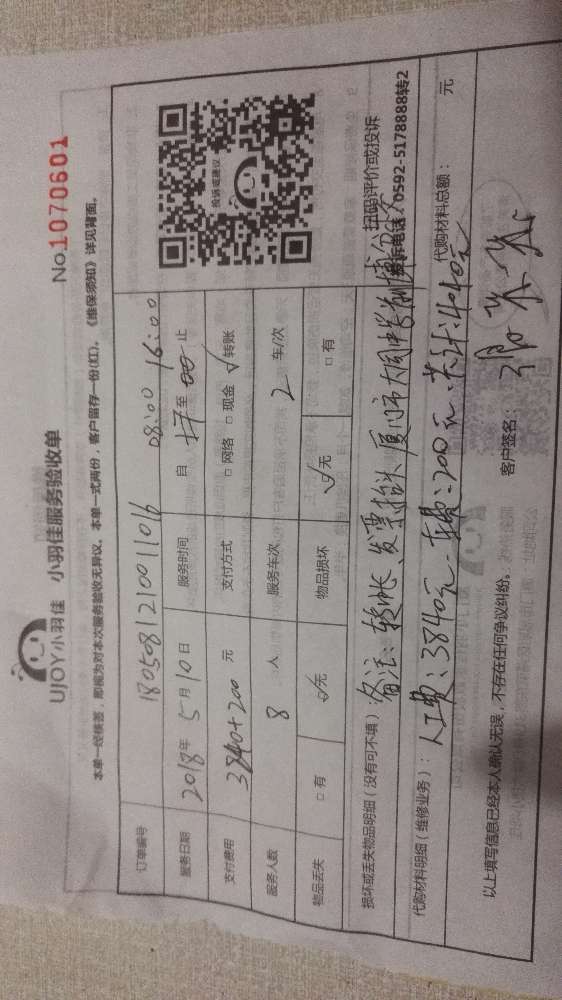 UJOY小羽佳 小羽佳服务验收单
No.1070601
本单一经核签，即视为对本次服务验收无异议。本单一式两份，客户留存一份(红)。《维保须知》详见背面。
订单编号 1805081210011016
服务日期 2018年5月10日 服务时间 自 08:00 至 16:00 止
支付费用 3840+200 元 支付方式 □网络 □现金 ☑转账
服务人数 8 人 服务车次 2 车/次
物品丢失 □有 ☑无 物品损坏 ☑无 □有
投诉或建议
扫码评价或投诉
投诉电话：0592-5178888转2
损坏或丢失物品明细（没有可不填）：备注：转帐、发票抬头厦门市大同中学
代购材料明细（维修业务）： 人工费：3840元、车费：200元、共计：4040元 代购材料总额： 元
以上填写信息已经本人确认无误，不存在任何争议纠纷。 客户签名：